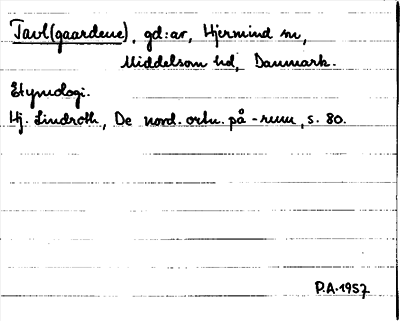 Tavl(gaardene), gd:ar, Hjermind sn,
Middelsom hd, Danmark.
Etymologi.
Hj. Lindroth, De nord. ortn. på -rum, s. 80.
P.A. 1957